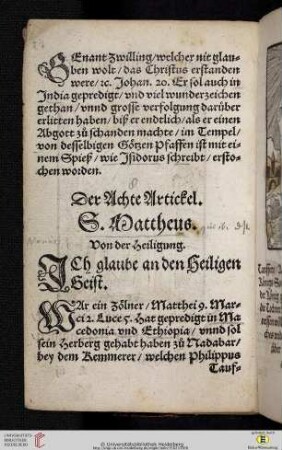 GEnant Zwilling/welcher nie glau-
ben wolt/das Christus erstanden
were/ꝛc. Johan. 20. Er sol auch in
India gepredigt/vnd viel wunderzeichen
gethan/vnnd grosse verfolgung darüber
erlitten haben/biß er endtlich/als er einen
Abgott zů schanden machte/im Tempel/
von desselbigen Götzen Pfaffen ist mit ei-
nem Spieß/wie Isidorus schreibt/ersto-
chen worden.
8
Der Achte Artickel.
S. Mattheus.
Von der Heiligung.
ICh glaube an den Heiligen
Geist.
WAr ein Zölner/Matthei 9. Mar-
ci 2. Luce 5. Hat gepredigt in Ma
cedonia vnd Ethiopia/vnnd sol
sein Herberg gehabt haben zů Madabar/
bey dem Kemmerer/welchen Philippus
Tauf-
© Universitätsbibliothek Heidelberg